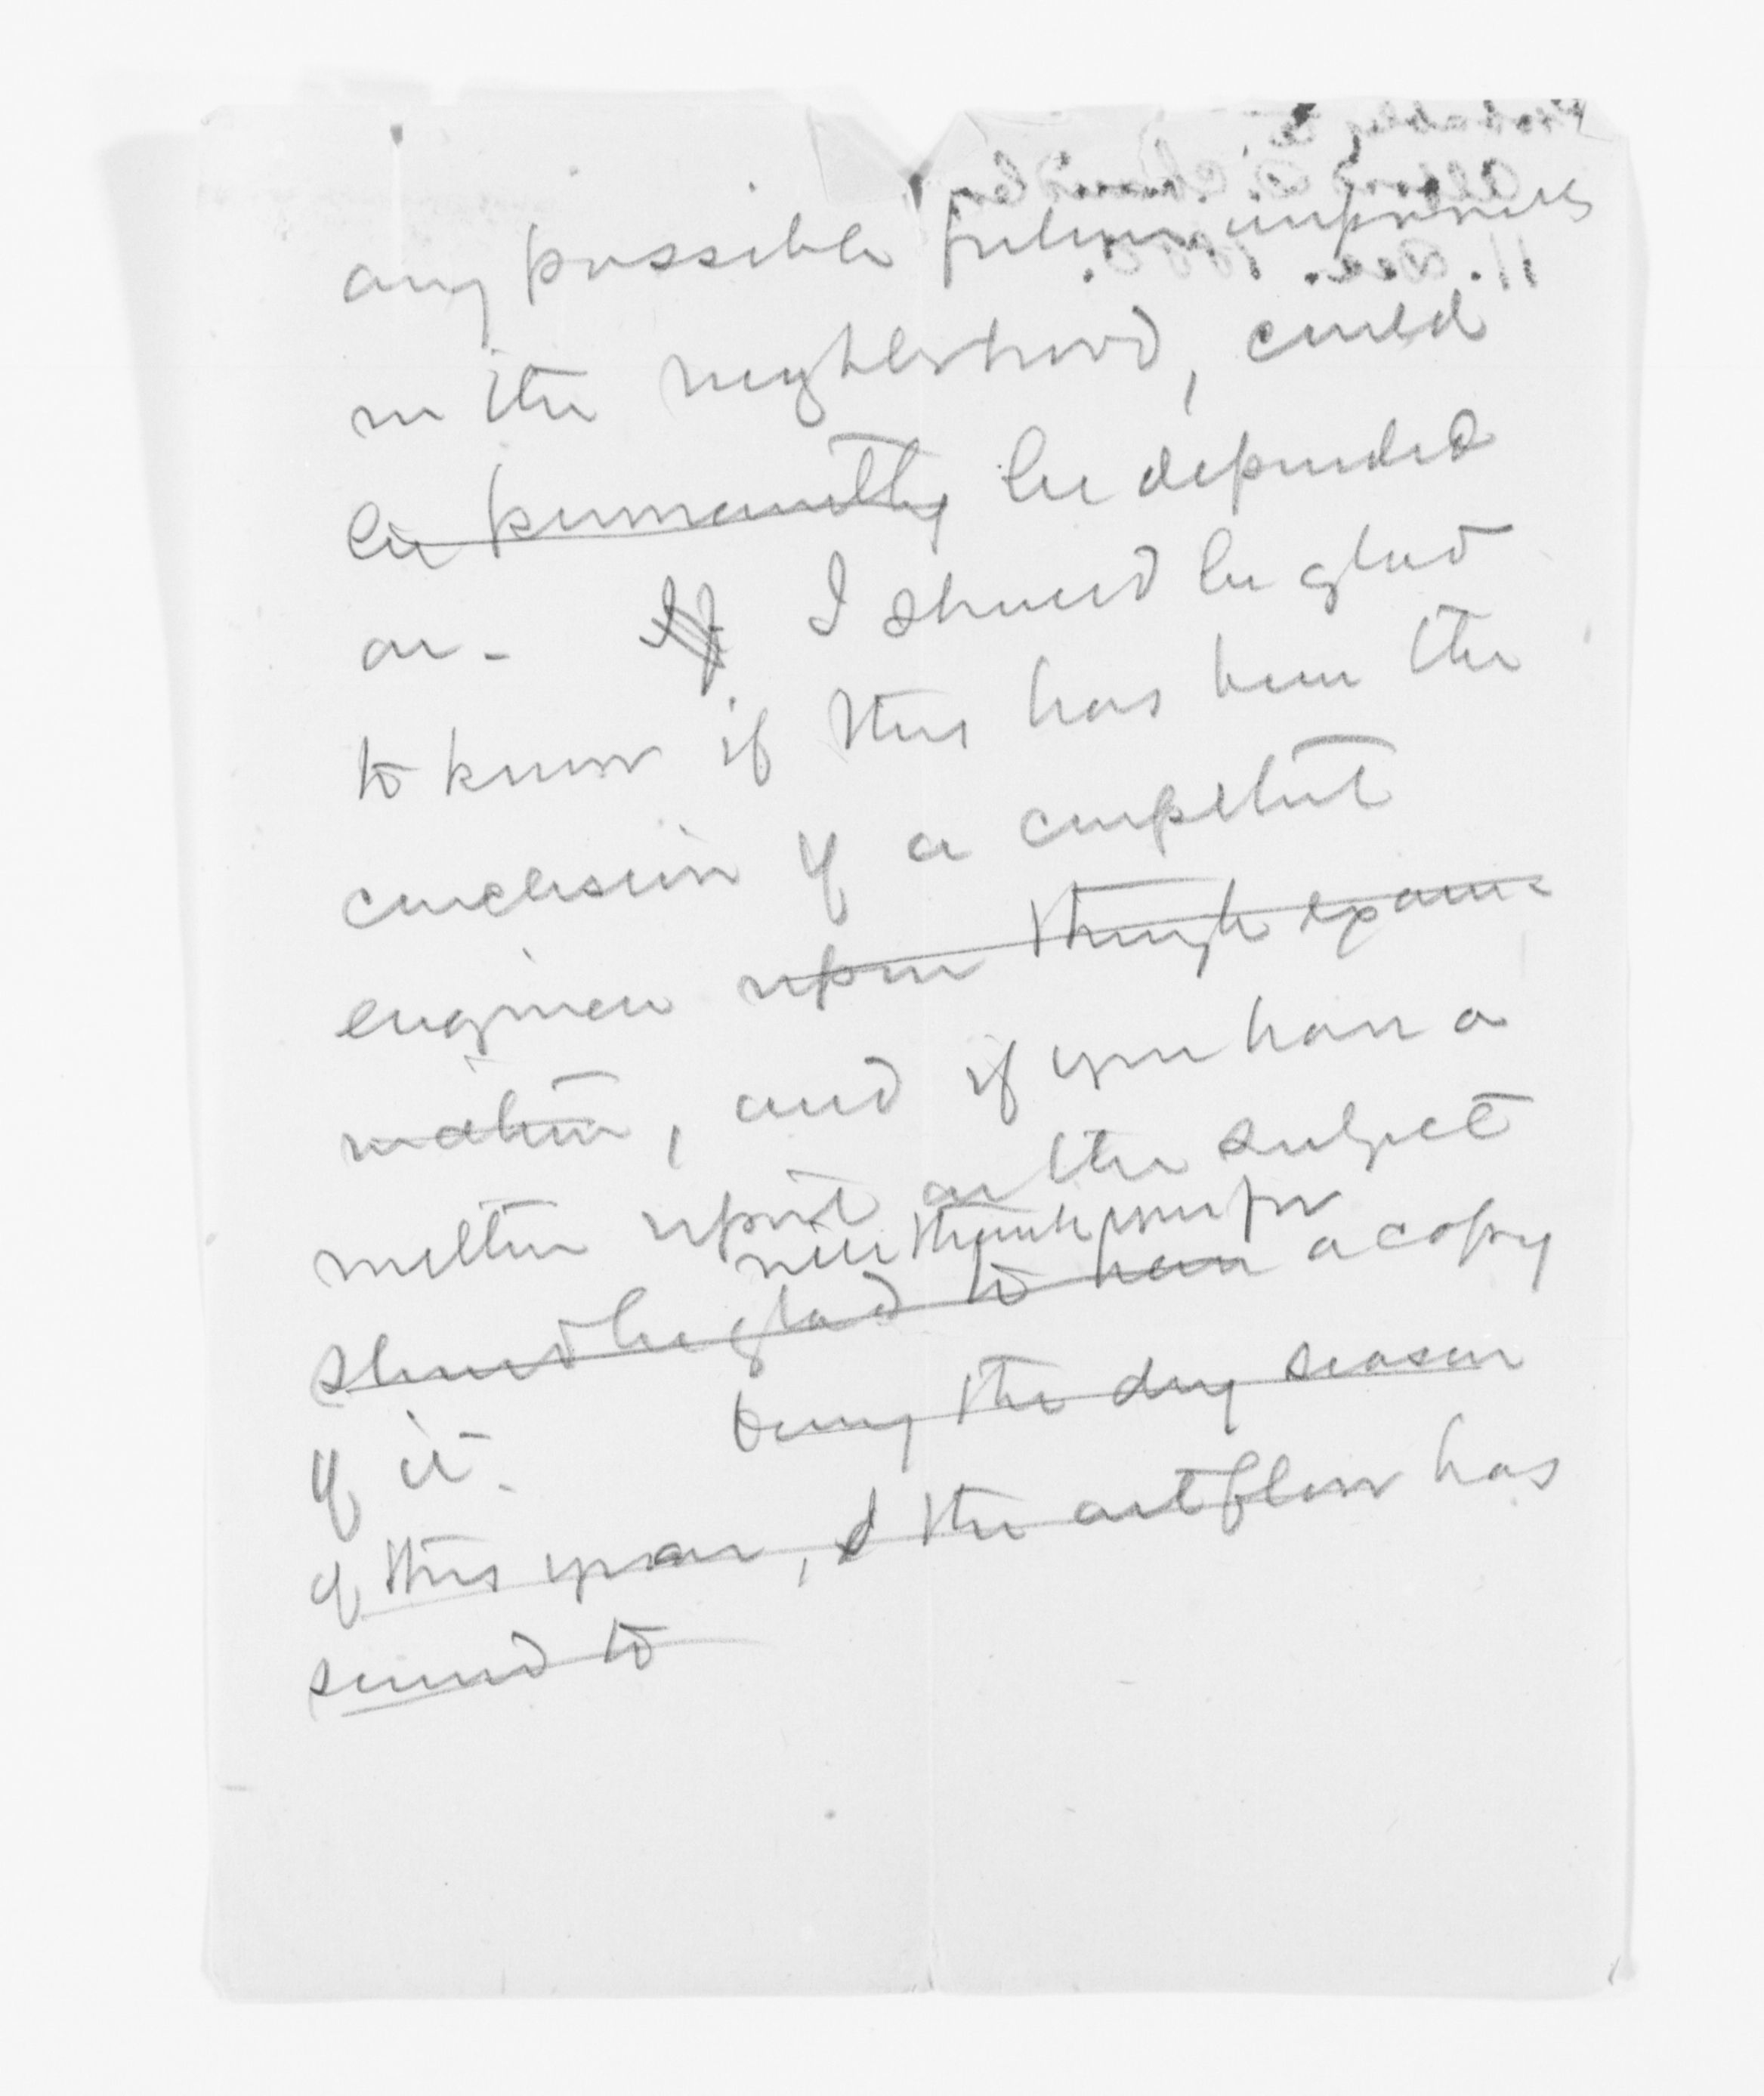 any possible future improvements
in the neighborhood, could
be permanently be depended
on - If I should be glad
to know if this has been the
conclusion of a competent
engineer upon through exami-
nation, and if you have a
written report on the subject
will thank you for
should be glad to have a copy
of it. being the dry season
of this year, & the outflow has
seemed to